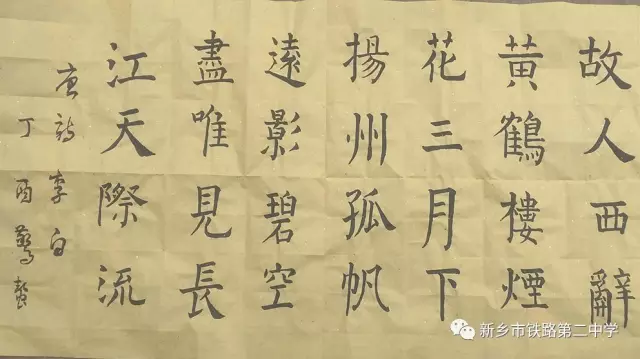 故人西辭
黄鶴樓煙
花三月下
揚州孤帆
遠影碧空
盡唯見長
江天際流
唐詩李白
丁酉驚蟄
新乡市铁路第二中学